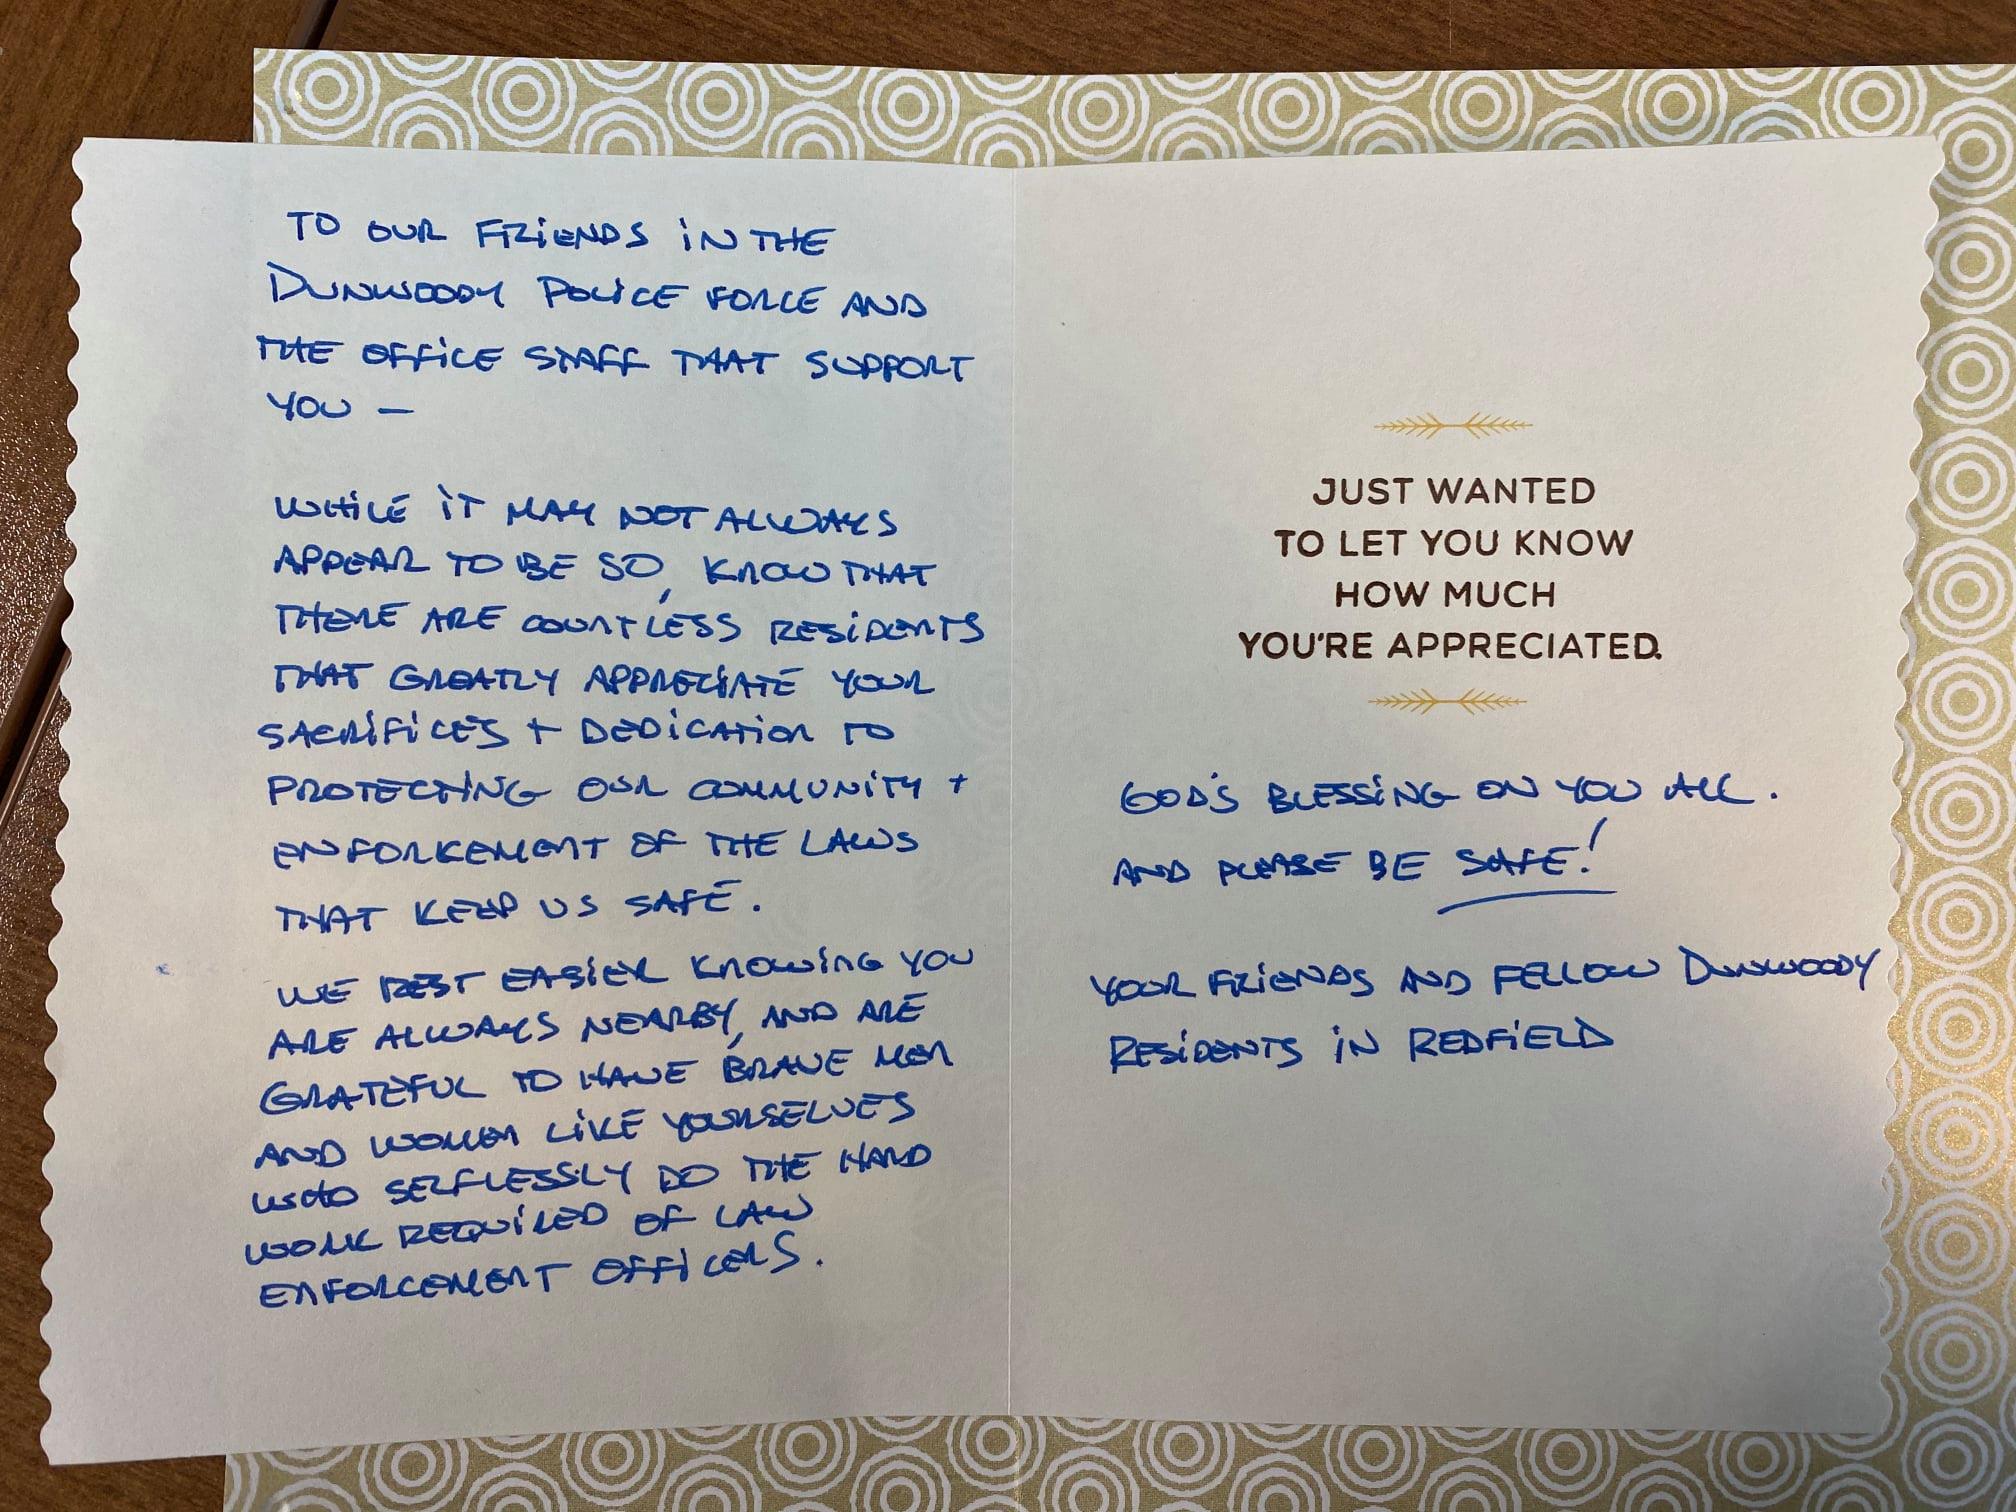 TO OUR FRIENDS IN THE
DUNWOODY POLICE FORCE AND
THE OFFICE STAFF THAT SUPPORT
YOU —
WHILE IT MAY NOT ALWAYS
APPEAR TO BE SO, KNOW THAT
THERE ARE COUNTLESS RESIDENTS
THAT GREATLY APPRECIATE YOUR
SACRIFICES + DEDICATION TO
PROTECTING OUR COMMUNITY +
ENFORKEMENT OF THE LAWS
THAT KEEP US SAFE.
WE REST EASIER KNOWING YOU
ARE ALWAYS NEARBY, AND ARE
GRATEFUL TO HAVE BRAVE MEN
AND WOMEN LIKE YOURSELVES
WHO SELFLESSLY DO THE HARD
WORK REQUIRED OF LAW
ENFORCEMENT OFFICERS.
JUST WANTED
TO LET YOU KNOW
HOW MUCH
YOU'RE APPRECIATED.
GOD'S BLESSING ON YOU ALL.
AND PLEASE BE SAFE!
YOUR FRIENDS AND FELLOW DUNWOODY
RESIDENTS IN REDFIELD